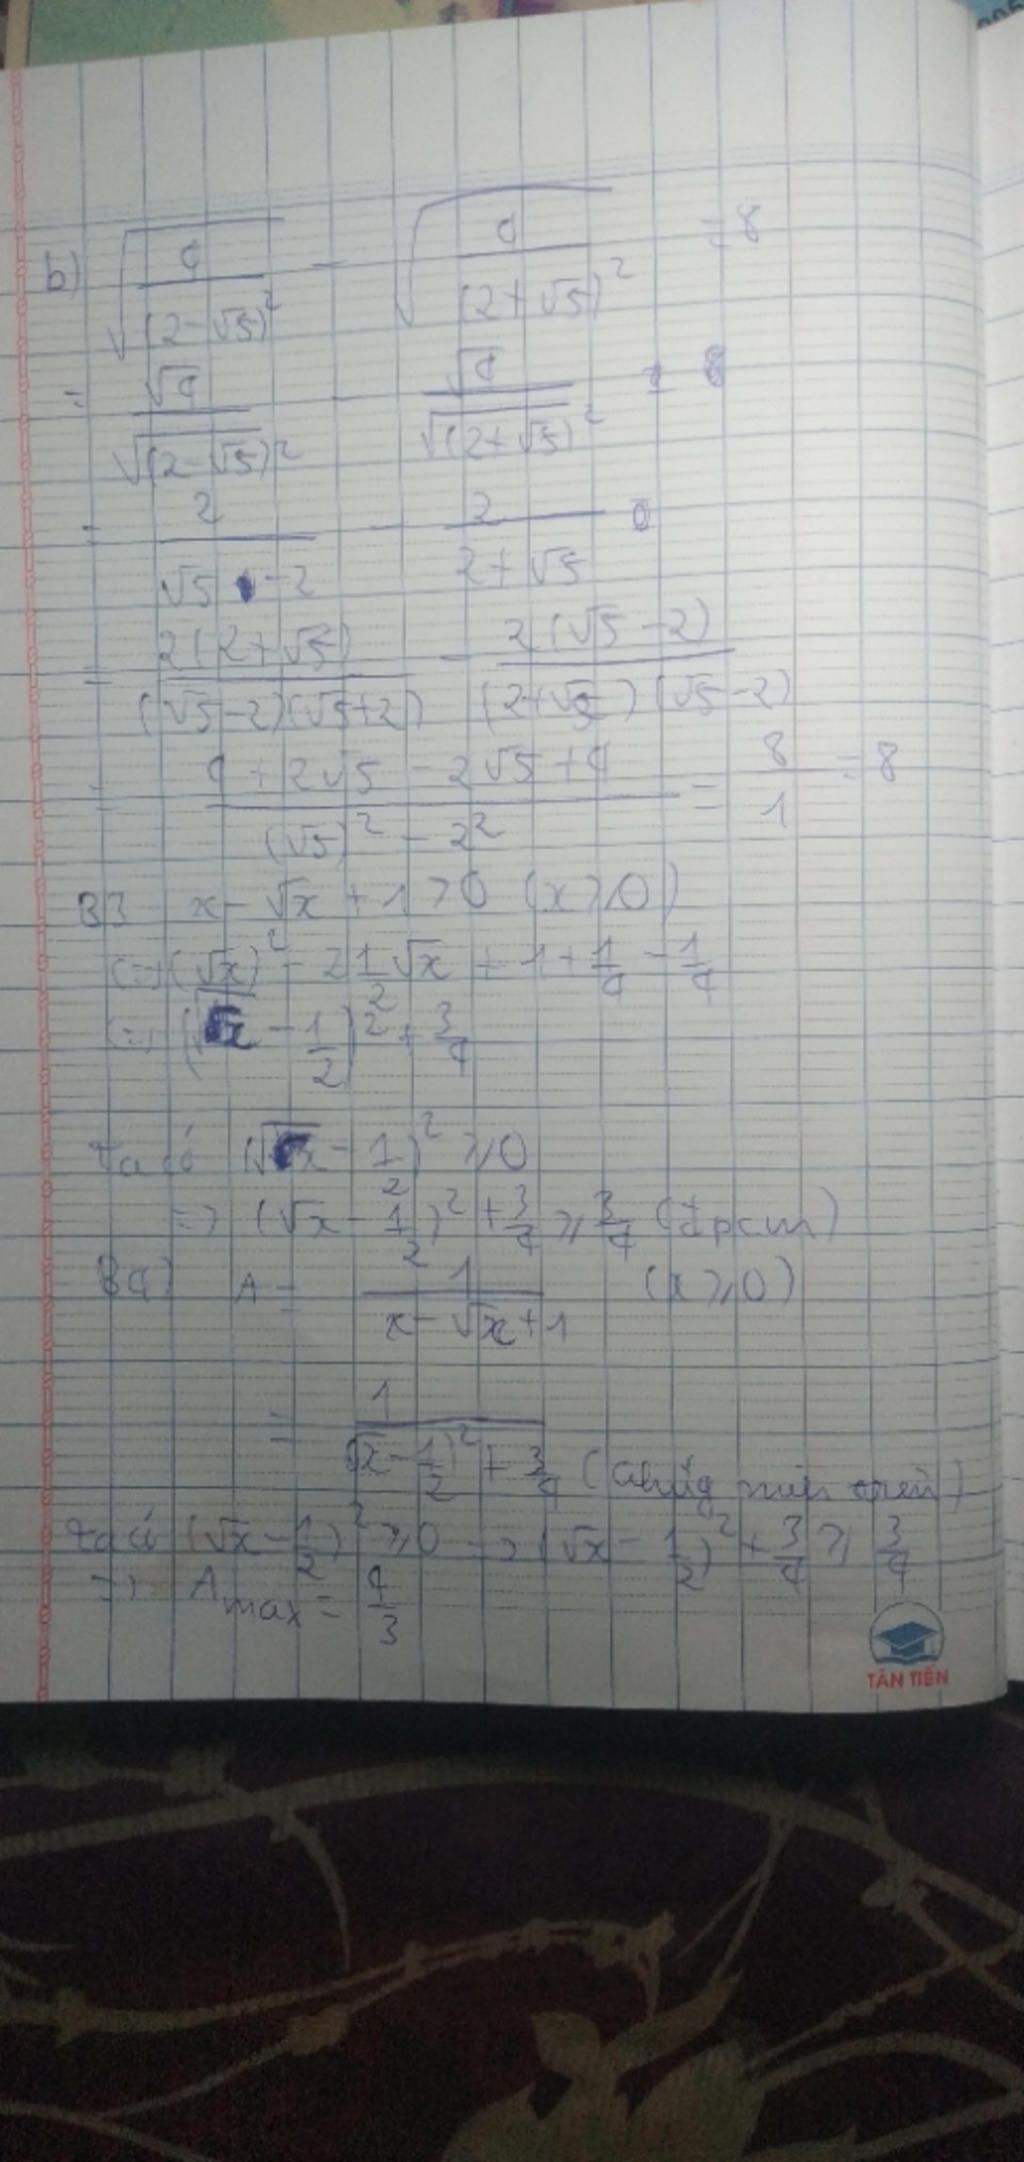 b) √(4/(2-√5)²) - √(4/(2+√5)²) = 8
= √4/√(2-√5)² - √4/√(2+√5)²
= 2/(√5-2) - 2/(2+√5)
= 2(2+√5)/((√5-2)(√5+2)) - 2(√5-2)/((2+√5)(√5-2))
= (4+2√5-2√5+4)/((√5)²-2²) = 8/1 = 8
B3 x-√x+1>0 (x≥0)
<=> (√x)²-2 1/2 √x+1+1/4-1/4
<=> (√x-1/2)²+3/4
ta có (√x-1/2)²≥0
=> (√x-1/2)²+3/4≥3/4 (đpcm)
B4) A = 1/(x-√x+1) (x≥0)
= 1/((√x-1/2)²+3/4) (chứng minh trên)
ta có (√x-1/2)²≥0 => (√x-1/2)²+3/4≥3/4
=> Amax = 4/3
TÂN TIẾN